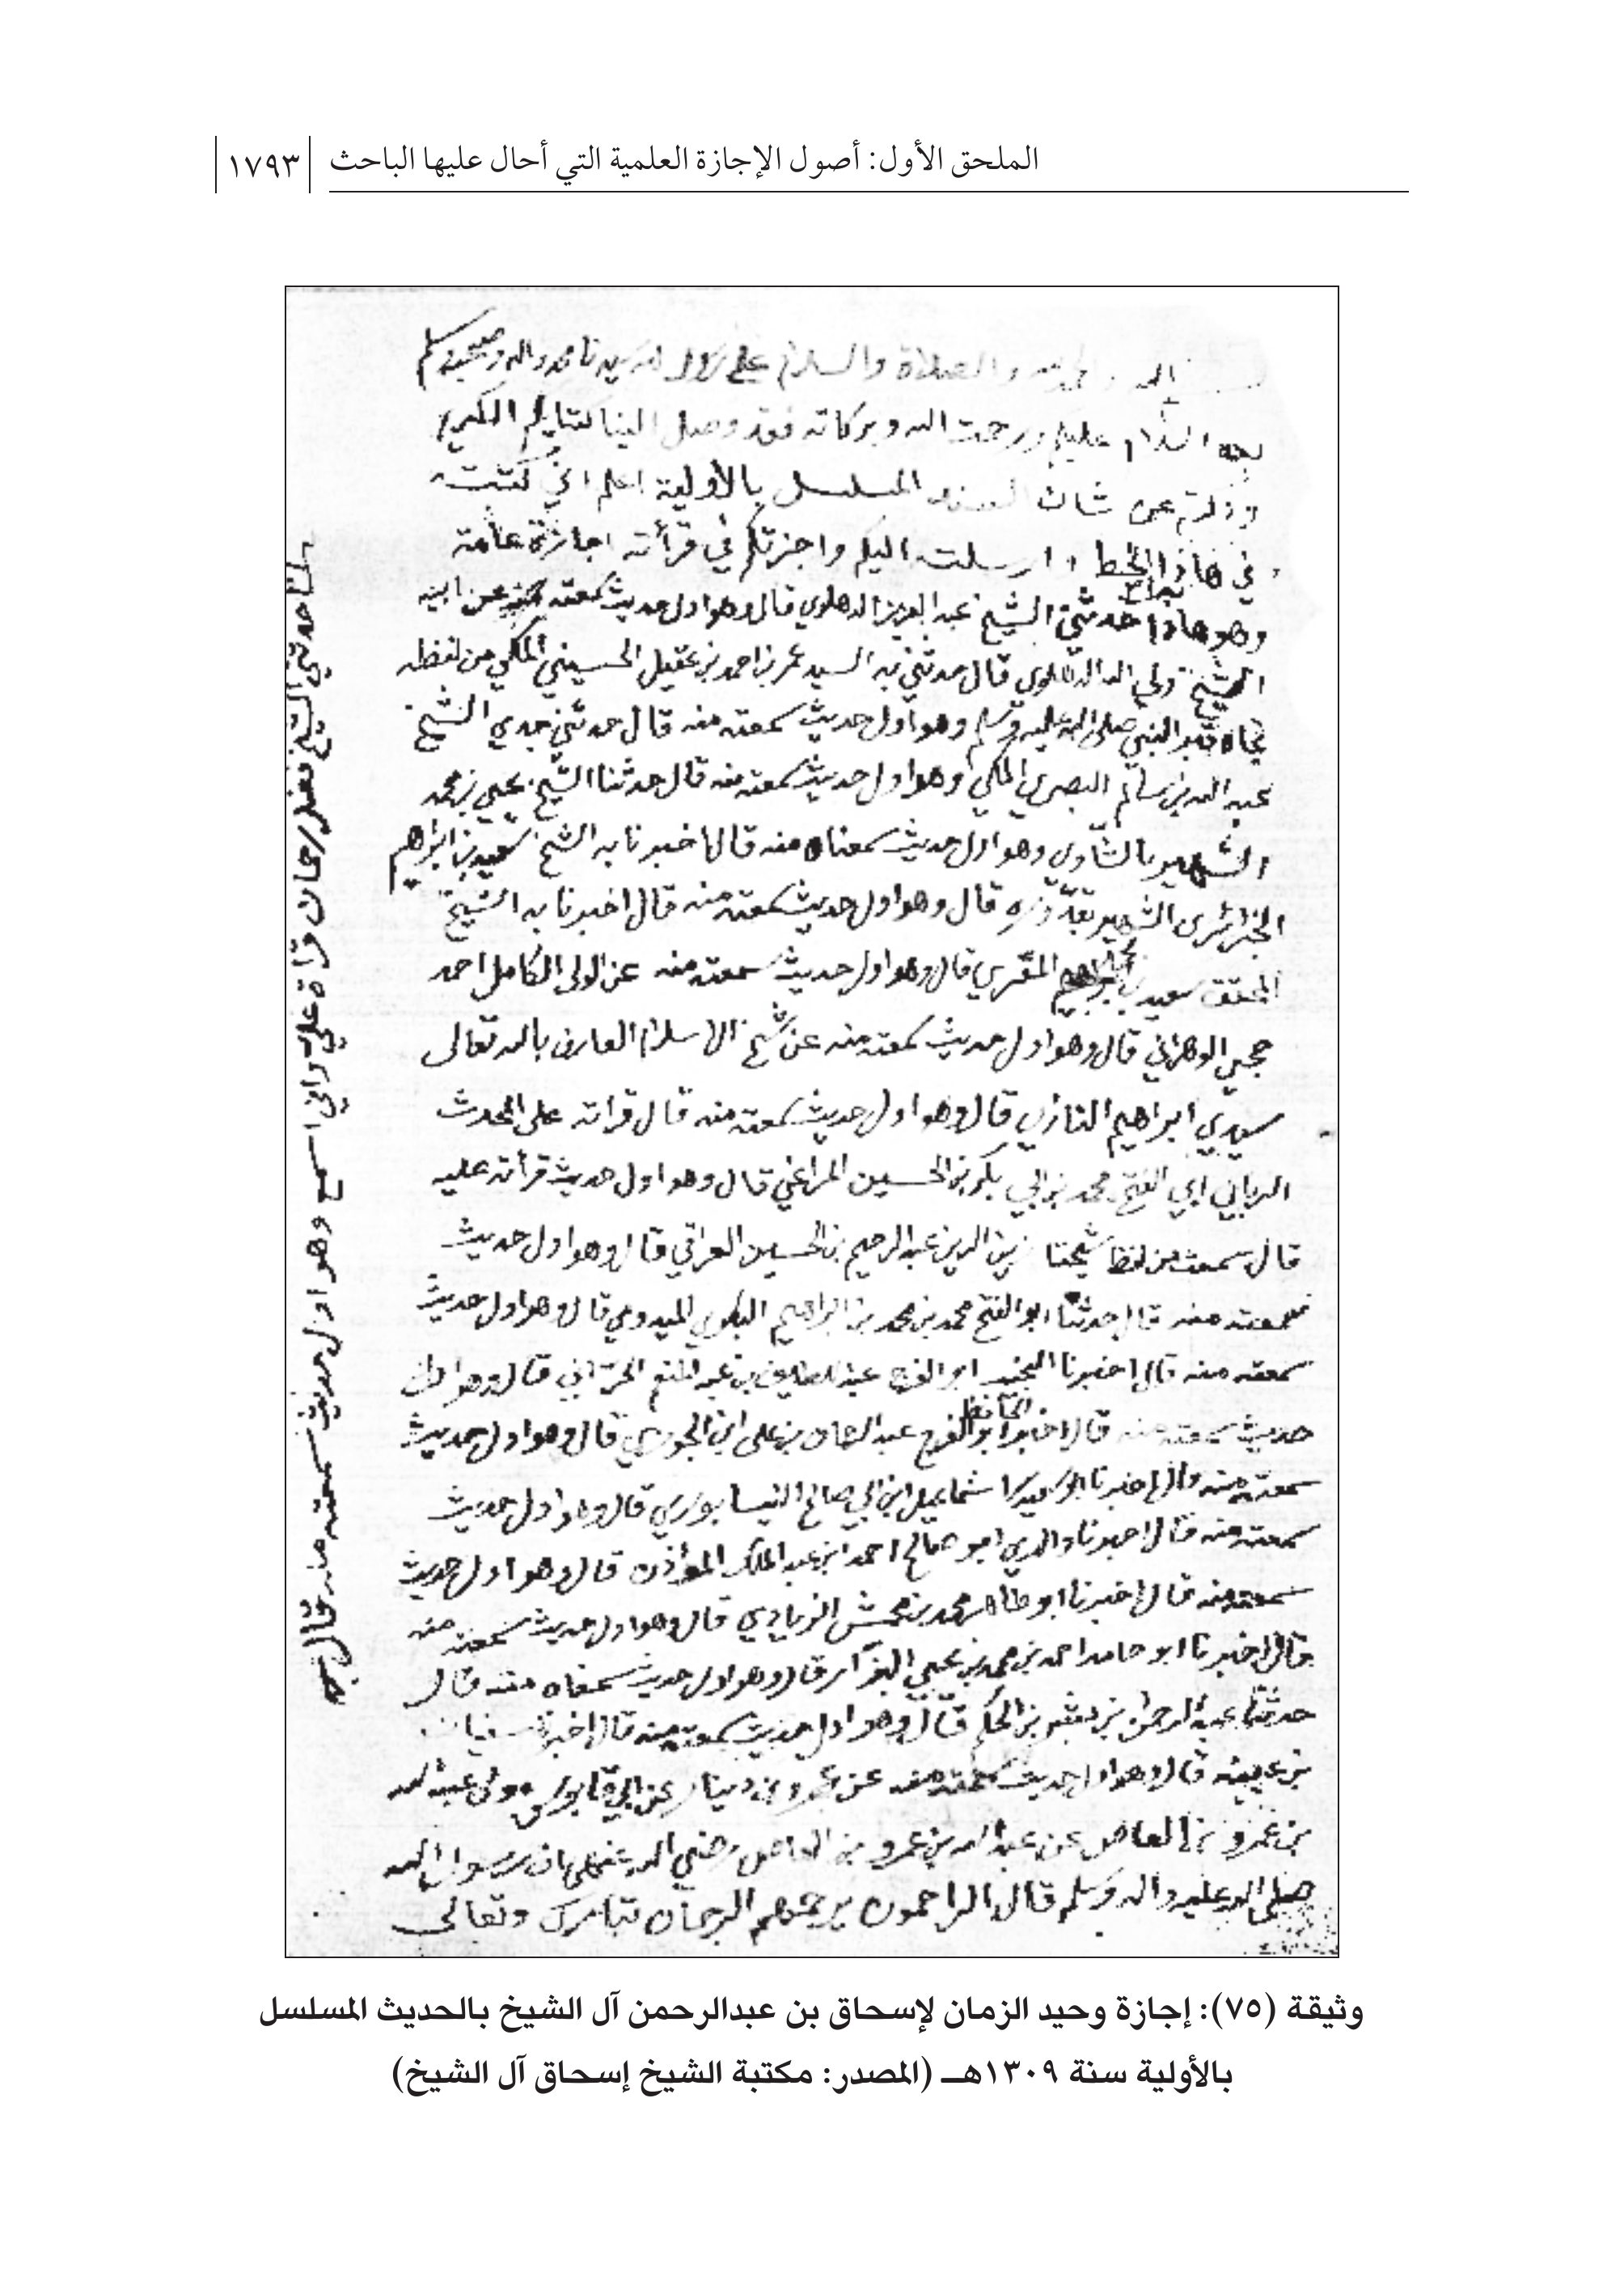 الملحق الأول: أصول الإجازة العلمية التي أحال عليها الباحث ١٧٩٣
والصلاة والسلام على رسول الله سيدنا محمد واله وصحبه وسلم
السلام عليكم ورحمت الله وبركاته فقد وصل الينا كتابكم الكريم
وذكرتم عن شان المسلسل بالأولية اعلم اني كتبت
في هاذا الخط وارسلت اليكم واجزتكم في قرأته اجازة عامة
وهو هاذا حدثني الشيخ عبد العزيز الدهلوي قال وهو اول حديث سمعته منه عن ابيه
الشيخ ولي الله الدهلوي قال حدثني به السيد عمر بن احمد بن عقيل الحسيني المكي من لفظه
تجاه قبر النبي صلى الله عليه وسلم وهو اول حديث سمعته منه قال حدثني جدي الشيخ
عبد الله بن سالم البصري المكي وهو اول حديث سمعته منه قال حدثنا الشيخ يحيى بن محمد
الشهير بالشاوي وهو اول حديث سمعناه منه قال اخبرنا به الشيخ سعيد بن ابراهيم
الجزائري الشهير بقدورة قال وهو اول حديث سمعته منه قال اخبرنا به الشيخ
المحقق سعيد بن محمد المقري قال وهو اول حديث سمعته منه عن الولي الكامل احمد
حجي الوهراني قال وهو اول حديث سمعته منه عن شيخ الاسلام العارف بالله تعالى
سيدي ابراهيم التازي قال وهو اول حديث سمعته منه قال قراته على المحدث
الرباني ابي الفتح محمد بن ابي بكر بن الحسين المراغي قال وهو اول حديث قرأته عليه
قال سمعت من لفظ شيخنا زين الدين عبد الرحيم بن الحسين العراقي قال وهو اول حديث
سمعته منه قال حدثنا ابو الفتح محمد بن محمد بن ابراهيم البكري الميدومي قال وهو اول حديث
سمعته منه قال اخبرنا النجيب ابو الفرج عبد اللطيف بن عبد المنعم الحراني قال وهو اول
حديث سمعته منه قال اخبرنا الحافظ ابو الفرج عبد الرحمان بن علي ابن الجوزي قال وهو اول حديث
سمعته منه قال اخبرنا ابو سعيد اسماعيل ابن ابي صالح النيسابوري قال وهو اول حديث
سمعته منه قال اخبرنا والدي ابو صالح احمد ابن عبد الملك المؤذن قال وهو اول حديث
سمعته منه قال اخبرنا ابو طاهر محمد بن محمش الزيادي قال وهو اول حديث سمعته منه
قال اخبرنا ابو حامد احمد بن محمد بن يحيى البزار قال وهو اول حديث سمعناه منه قال
حدثنا عبد الرحمن بن بشر بن الحكم قال وهو اول حديث سمعته منه قال اخبرنا سفيان
بن عيينه قال وهو اول حديث سمعته منه عن عمرو بن دينار عن ابي قابوس مولى عبد الله
بن عمرو بن العاص عن عبد الله بن عمرو بن العاص رضي الله عنهما ان رسول الله
صلى الله عليه واله وسلم قال الراحمون يرحمهم الرحمان تبارك وتعالى
حدثني الشيخ فضل رحمان قراة علي واني اسمع وهو اول حديث سمعته منه قال
وثيقة (٧٥): إجازة وحيد الزمان لإسحاق بن عبدالرحمن آل الشيخ بالحديث المسلسل
بالأولية سنة ١٣٠٩هـ (المصدر: مكتبة الشيخ إسحاق آل الشيخ)